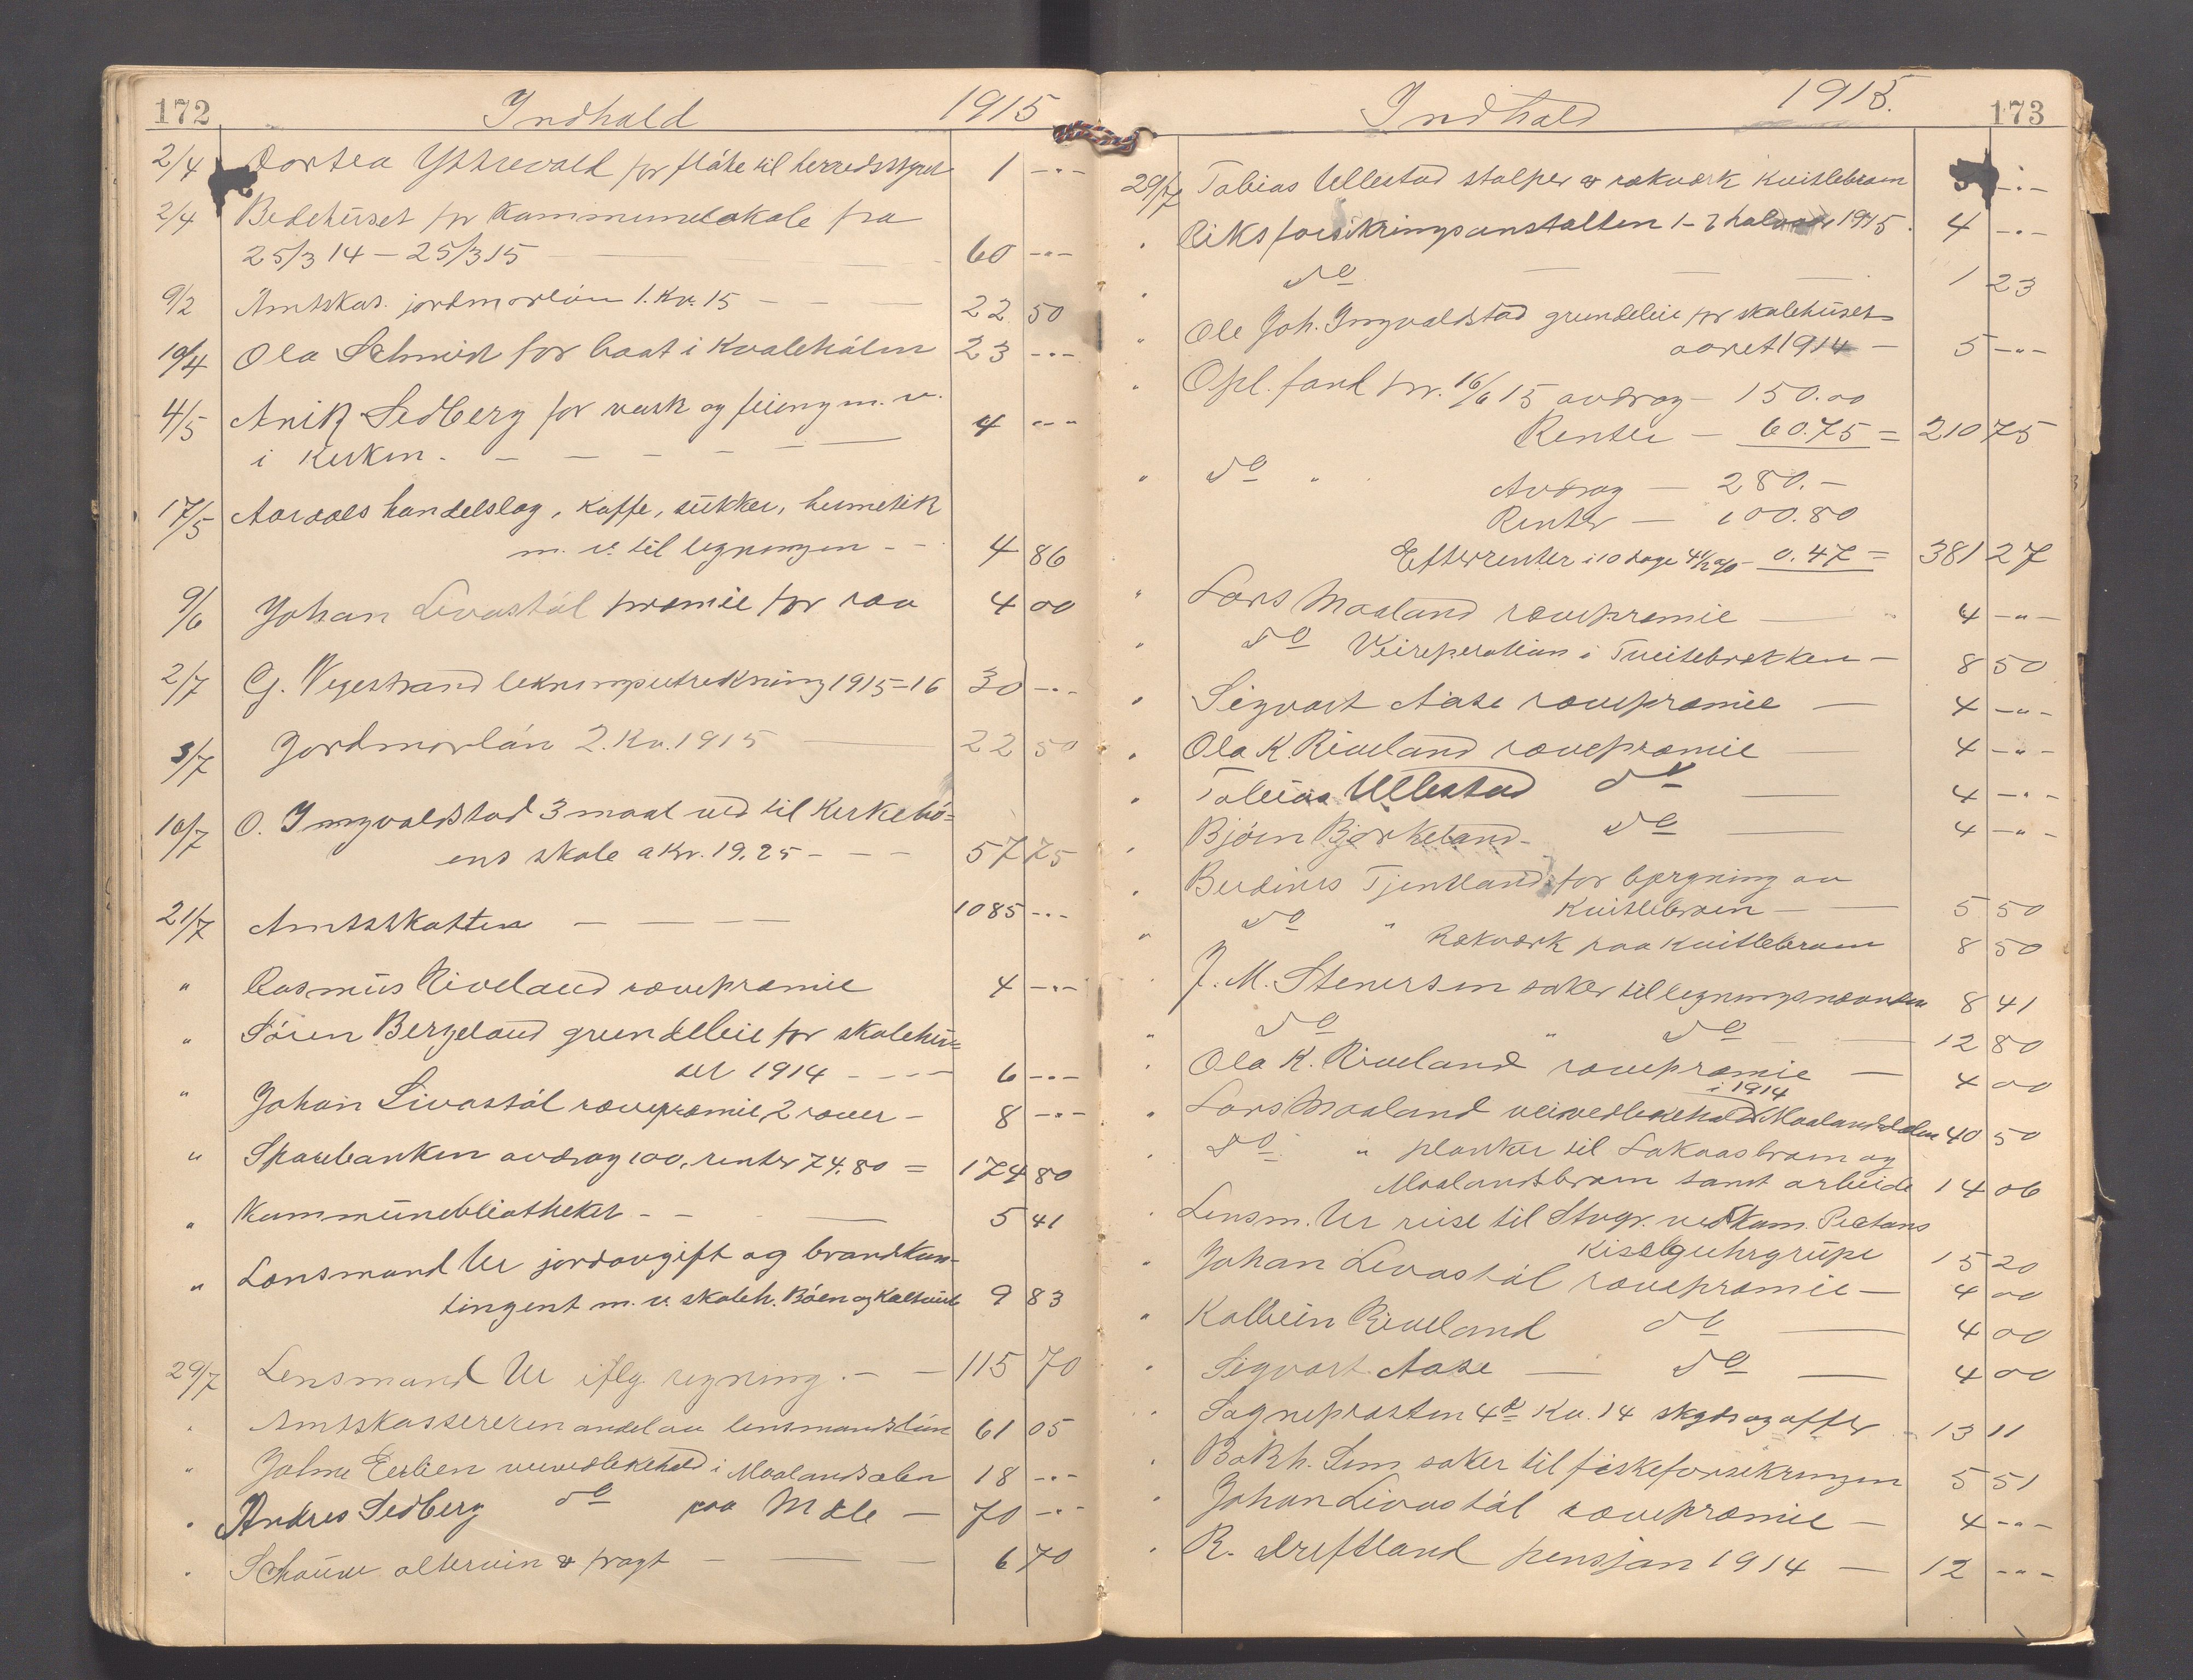 172 Indhald 1915
2/4 Dortea Yttrevold for flåte til herredsstyret 1 -"-
2/4 Bedehuset for Kommunelokale fra
25/3 14 - 25/3 15 60 -"-
9/2 Amtskas. jordmorløn 1. Kv. 15 22 50
10/4 Ola Schmidt for baat i Kvaleholm 23 -"-
4/5 Anik Sedberg for vask og feieing m. v. 4 -"-
i Kirken.
17/5 Aardals handelslag, kaffe, sukker, hermetik
m. v. til ligningen 4 86
9/6 Johan Livastøl premie for rev 4 00
2/7 G. Vegestrand ligningsutrekning 1915-16 30 -"-
3/7 Jordmorløn 2. Kv. 1915 22 50
10/7 O. Ingvaldstad 3 maal ved til Kirkebö=
ens skole a Kr. 19.25 57 75
21/7 Amtsskatten 1085 -"-
" Rasmus Riveland rævepræmie 4 -"-
" Sören Bergeland grundleie for skolehu=
set 1914 6 -"-
" Johan Livastøl rævepræmie, 2 ræver - 8 -"-
" Sparebanken avdrag 100, renter 74.80 = 174 80
" Kommunebliotheket 5 41
" Lensmand Ur jordavgift og brandkon-
tingent m. v. skoleh. Böen og Kaltveit 9 83
29/7 Lensmand Ur iflg regning. 115 70
" Amtskassereren andel av lensmandsløn 61 05
" Johne Eerlien veivedlikehold i Maalandsdalen 18 -"-
" Andres Sedberg do paa Mæle 70 -"-
" Schouw altervin & fragt 6 70
Indhald 1915. 173
29/7 Tobias Ullestad stolper & rekverk Kvitlebroen -"-
" Riksforsikringsanstalten 1-2 halvaar 1915. 4 -"-
" do 1 23
" Ole Joh. Ingvaldstad grundleie for skolehuset
aaret 1914 - 5 -"-
" Opl. fond pr. 16/6 15 avdrag - 150.00
Renter - 60.75 = 210 75
" do " Avdrag - 280.-
Renter - 100.80
Efterrenter i 10 dage 4 1/2 % - 0.47 = 381 27
" Lars Maaland rævepræmie 4 -"-
" do Veireperation i Tveitebrekken - 8 50
" Sigvart Aase rævepræmie 4 -"-
" Ola K. Riveland rævepræmie 4 -"-
" Tobias Ullestad do 4 -"-
" Bjørn Bjørkeland - do 4 -"-
" Berdines Tjentland for bergning av
Kvitlebroen 5 50
" do " Rekverk paa Kvitlebroen 8 50
" J. M. Stenersen saker til ligningsnevnden 8 41
" do " do 12 80
" Ola K. Riveland rævepræmie 4 00
i 1914
" Lars Maaland veivedlikehold Maalandsdalen 40 50
" do " planker til Lakaasbroen og
Maalandsbroen samt arbeide 14 06
" Lensm. Ur reise til Stvgr. ved Kom. Pectans
Kiselguhrgrupe 15 20
" Johan Livastøl rævepræmie - 4 00
" Kolbein Riveland do 4 00
" Sigvart Aase do 4 00
" Sogneprasten 4de Kv. 14 skyds og offer 13 11
" Bokh. Sem saker til fiskeforsikringen 5 51
" Johan Livastøl rævepræmie - 4 -"-
" R. Dreftland pensjon 1914 - 12 -"-